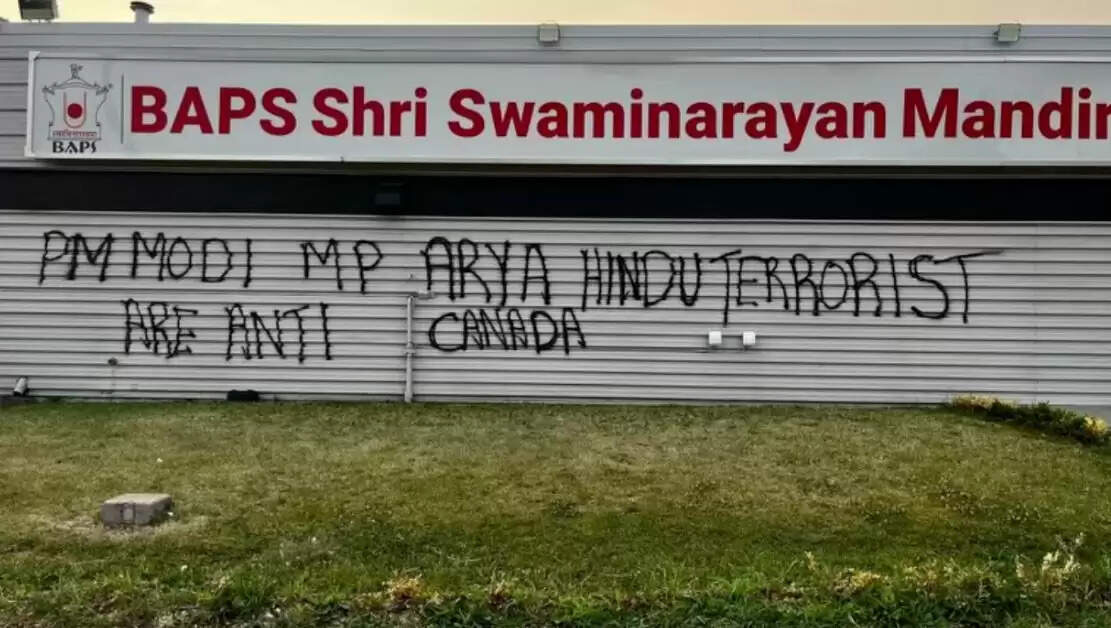 BAPS Shri Swaminarayan Mandir
BAPS
PM MODI MP ARYA HINDU TERRORIST
ARE ANTI CANADA